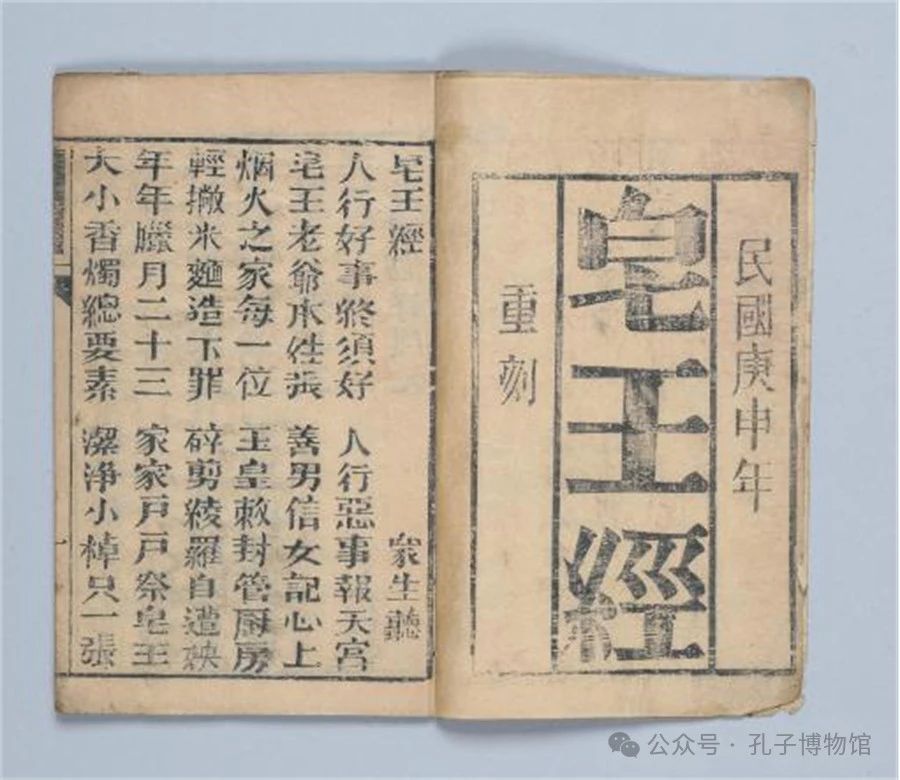 民國庚申年
皂王經
重刻
皂王經 衆生聽
人行好事終須好 人行惡事報天宮
皂王老爺本姓張 善男信女記心上
烟火之家每一位 玉皇敕封管厨房
輕撒米麵造下罪 碎剪綾羅自遭殃
年年臘月二十三 家家戶戶祭皂王
大小香燭總要素 潔淨小棹只一張
一
公众号 · 孔子博物馆